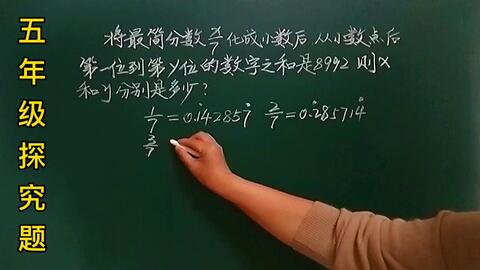 五年级探究题
将最简分数x/7化成小数后从小数点后
第一位到第y位的数字之和是8992则x
和y分别是多少?
1/7 = 0.1̇42857̇ 2/7 = 0.2̇85714̇
3/7